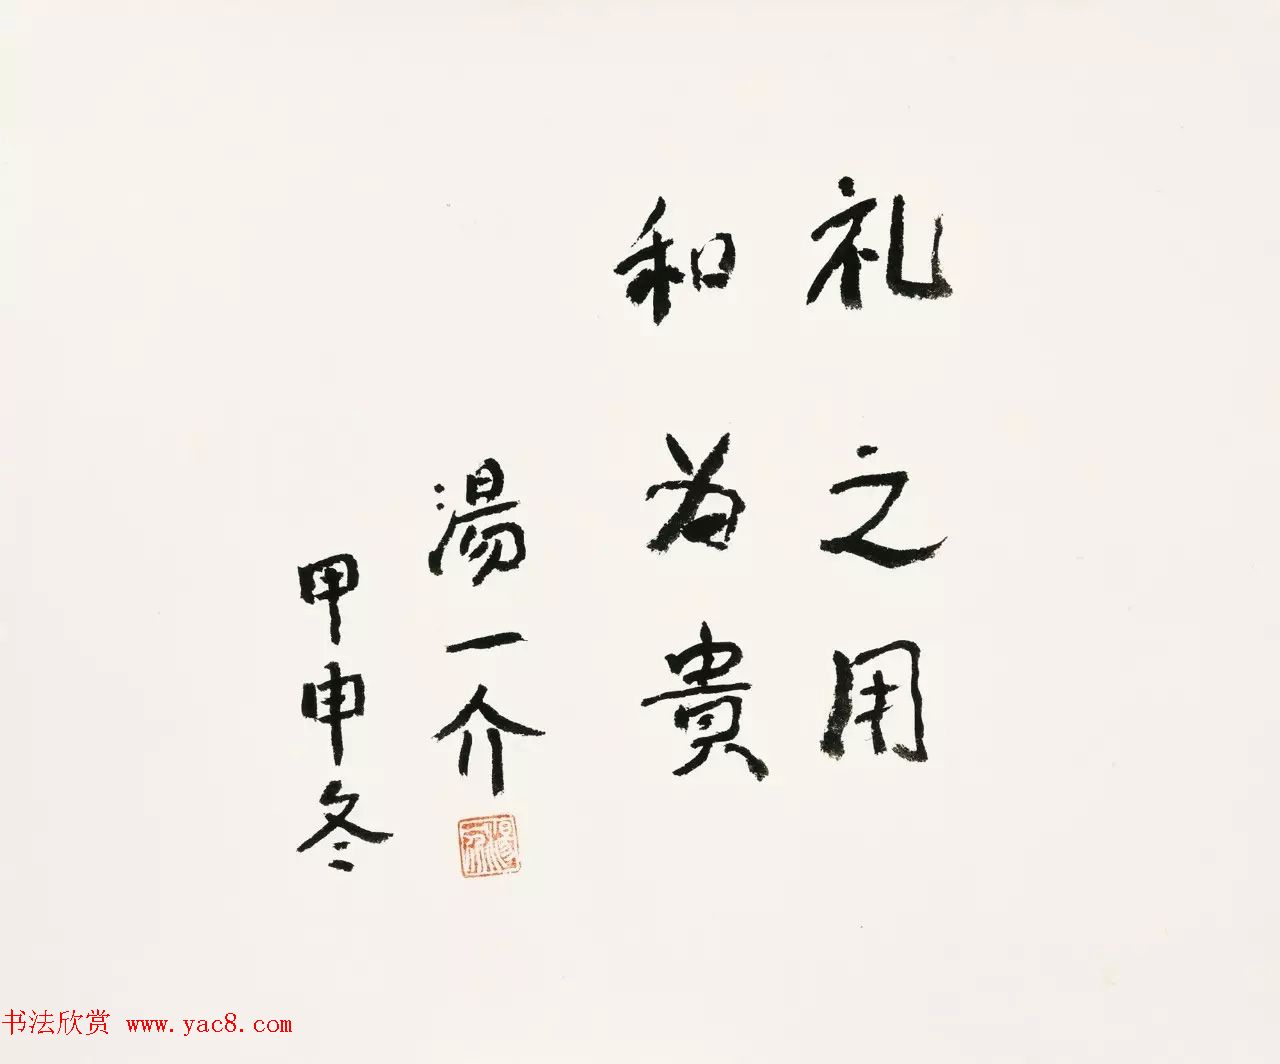 礼之用
和为貴
湯一介
甲申冬
湯一介
书法欣赏 www.yac8.com